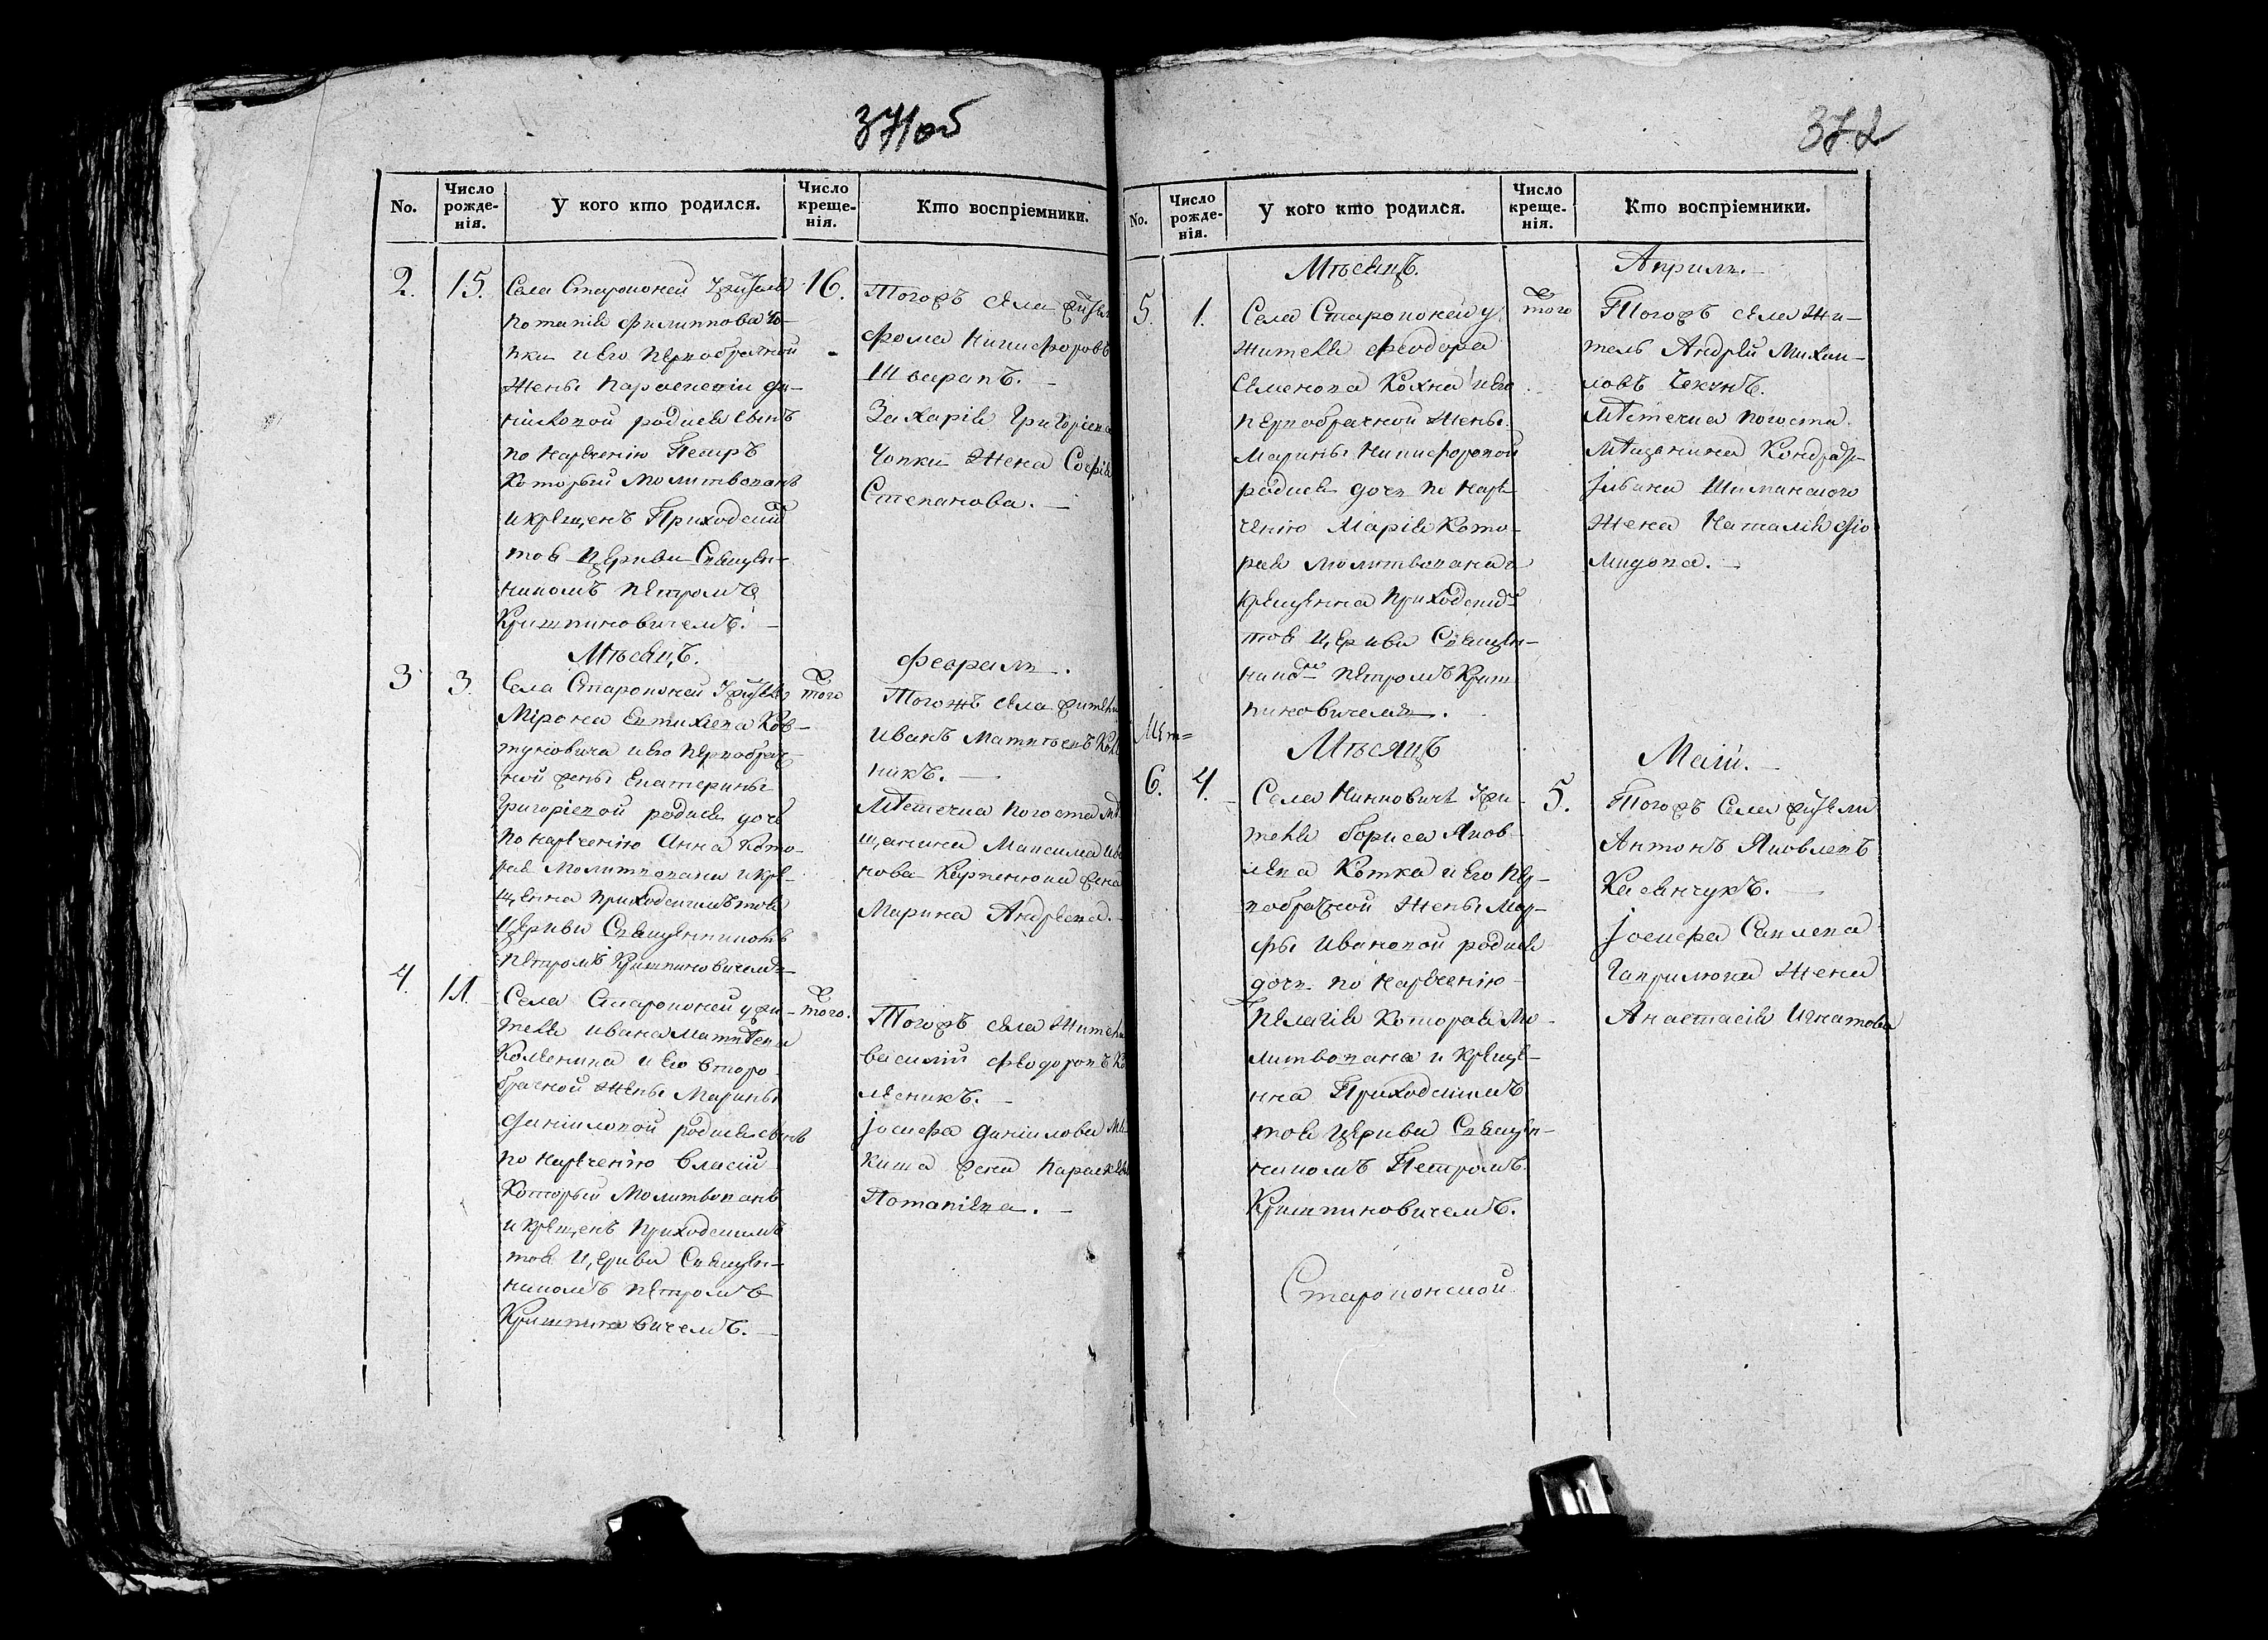 371об
No.
Число рожде-нія.
У кого кто родился.
Число креще-нія.
Кто воспріемники.
2.
15.
Села Староконей жителя
Потапія Филиппова Чо-
пки и его первобрачной
жены Параскевіи Да-
ніиловой родися сынъ
по наречению Петръ
который молитвованъ
и крещенъ Приходскимъ
тоя церкви Священ-
никомъ Петромъ
Криштиновичемъ.
16.
Тогожъ села жител
Фома Никифоровъ
Швирапъ.
Захарія Григоріева
Чопки жена Софія
Степанова.
Мѣсяцъ.
Февраль.
3
3.
Села Староконей жителя
Мірона Евтихіева Ков-
туновича и его первобрач-
ной жены Екатерины
Григоріевой родися дочь
по нареченію Анна кото-
рая молитвована и кре-
щенна приходскимъ тоя
церкви Священникомъ
Петромъ Криштиновичемъ
того
Тогожъ села жители
Иванъ Матвѣевъ Коле
никъ.
Мѣстечка Погоста мѣ
щанина Максима Ива
нова Карпенюка жена
Марина Андреева.
4.
11.
Села Староконей жи-
теля Ивана Матвѣева
Коленика и его второ
брачной жены Марины
Даніиловой родися сынъ
по нареченію Власій
который молитвованъ
и крещенъ приходскимъ
тоя церкви Священ-
никомъ Петромъ
Криштиновичемъ.
того.
Тогожъ села жители
Василій Феодоровъ Ко
леникъ.
Іосифа Даніилова Ми
киша жена Параскева
Потапіева.
372
No.
Число рожде-нія.
У кого кто родился.
Число креще-нія.
Кто воспріемники.
Мѣсяцъ.
Апрыль.
5.
1.
Села Староконей
жителя Феодора
Семенова Кохна и его
первобрачной жены
Марины Никифоровой
родися дочь по наре
ченію Марія кото-
рая молитвована и
крещенна приходским
тоя церкви Священ-
никомъ Петромъ Криш
тиновичемъ.
того
Тогожъ села жи-
тель Андрей Михаи-
ловъ Чекунъ.
Мѣстечка Погоста
мѣщанина Кондрата
Шиманского
жена Наталія Дio
мидова.
Мѣсяцъ
Маій.
6.
4.
Села Никковичъ жи-
теля Бориса Яков-
лева Котка и его пер-
вобрачной жены Мар-
фы Ивановой родися
дочь по нареченію
Пелагія которая мо-
литвована и креще-
нна Приходскимъ
тоя церкви Священ-
никомъ Петромъ
Криштиновичемъ.
5.
Тогожъ села жители
Антонъ Яковлевъ
Касянчукъ.
Іосифа Савлева
Гаврилюка жена
Анастасія Игнатова
Староконской